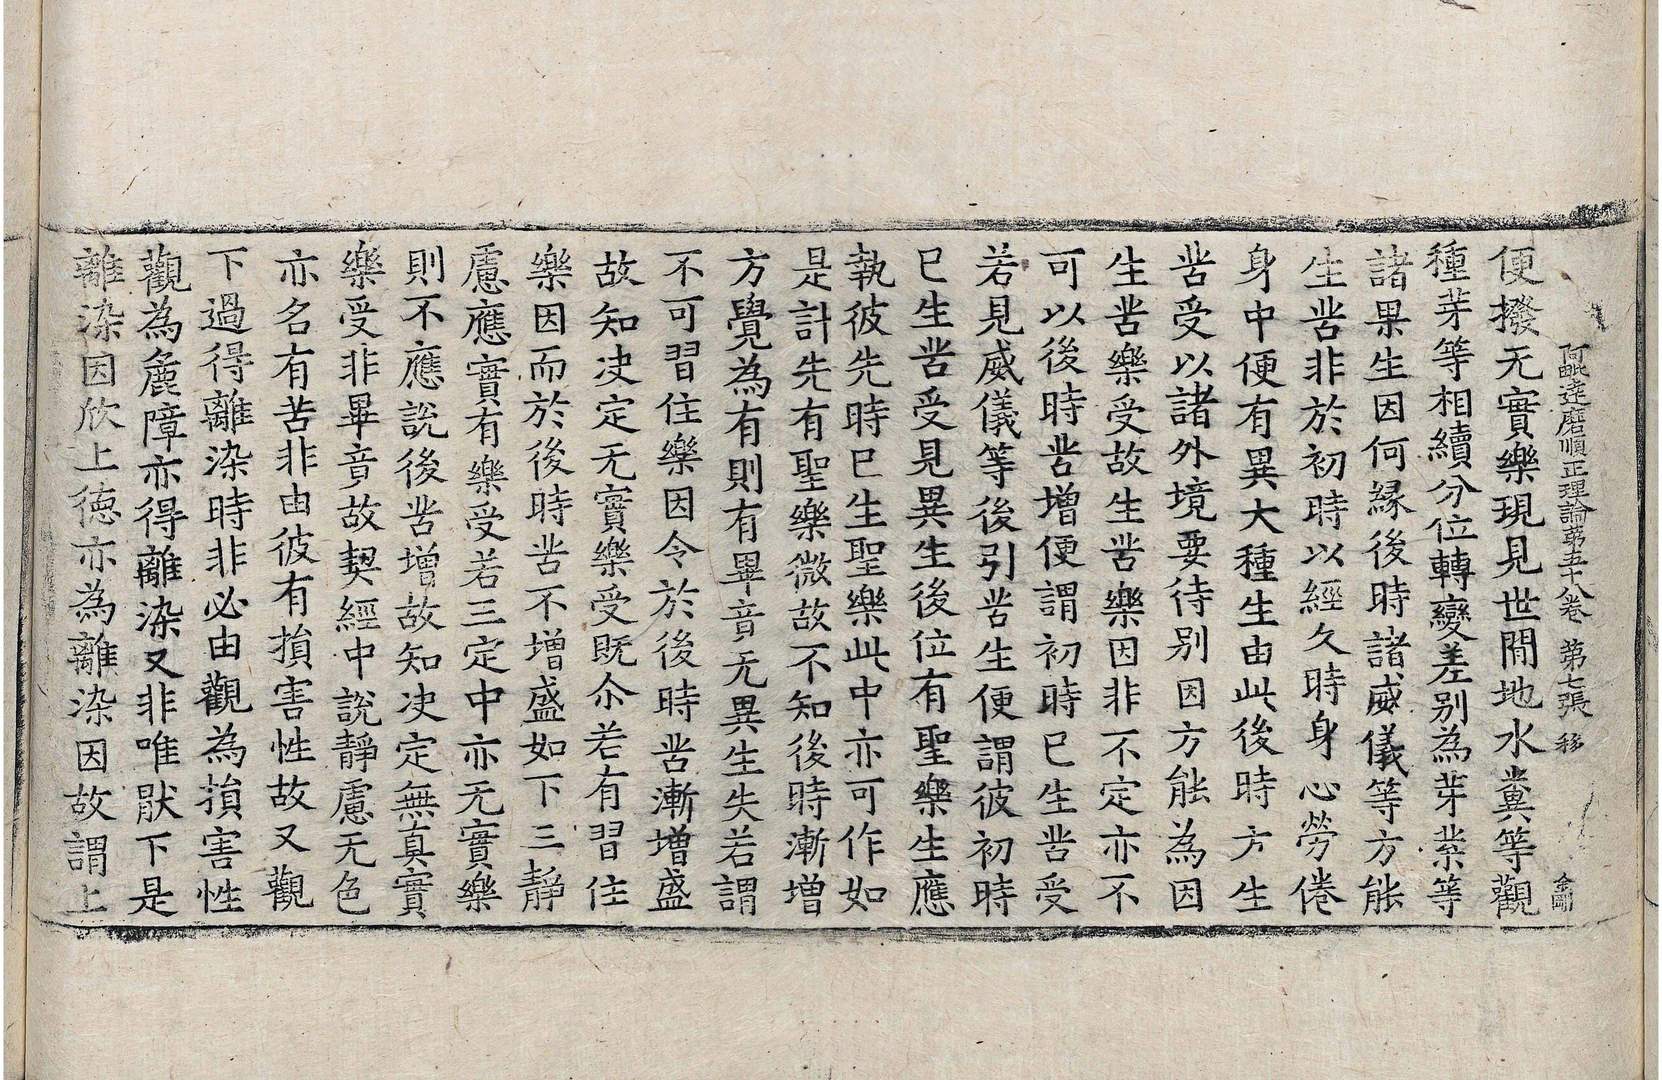 阿毗達磨順正理論第五十八卷 第七張 移 金剛
便撥无實樂現見世間地水糞等觀
種芽等相續分位轉變差別為芽等
諸果生因何緣後時諸威儀等方能
生苦非於初時以經久時身心勞倦
身中便有異大種生由此後時方生
苦受以諸外境要待別因方能為因
生苦樂受故生苦樂因非不定亦不
可以後時苦增便謂初時已生苦受
若見威儀等後引苦生便謂彼初時
已生苦受見異生後位有聖樂生應
執彼先時已生聖樂此中亦可作如
是計先有聖樂微故不知後時漸增
方覺為有則有畢竟无異生失若謂
不可習住樂因令於後時苦漸增盛
故知决定无實樂受既尒若有習住
樂因而於後時苦不增盛如下三靜
慮應實有樂受若三定中亦无實樂
則不應說後苦增故知决定無真實
樂受非畢竟故契經中說靜慮无色
亦名有苦非由彼有損害性故又觀
下過得離染時非必由觀為損害性
觀為麁障亦得離染又非唯猒下是
離染因欣上德亦為離染因故謂上